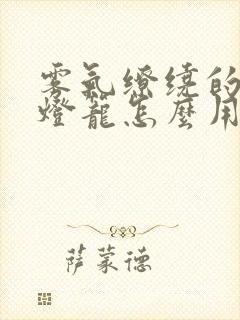 雾氣繚繞的
燈籠怎麼用
萨蒙德